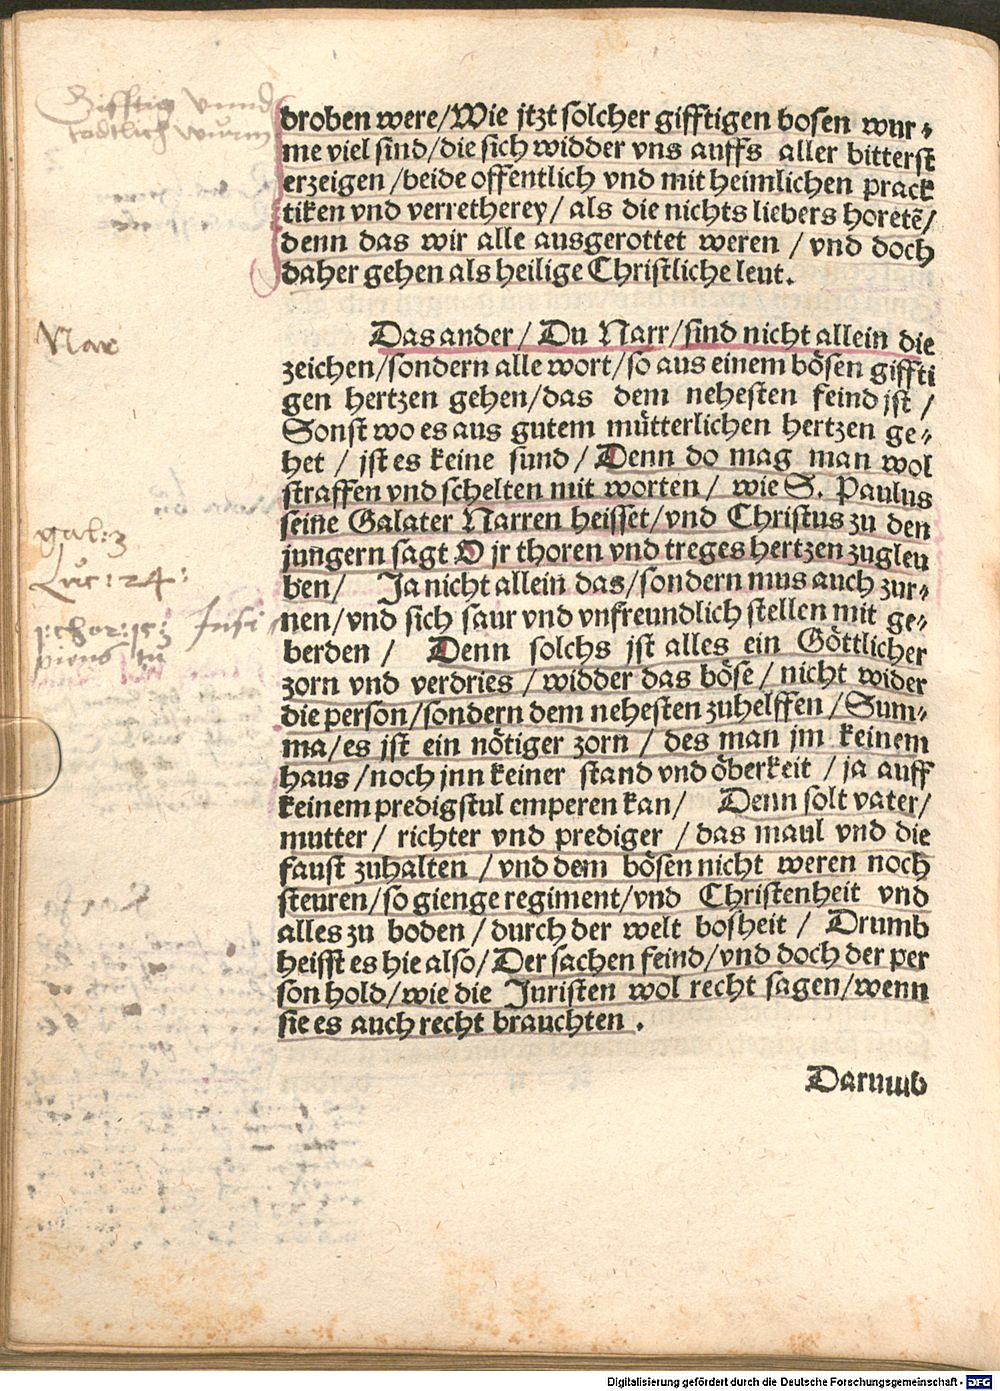 Gifftig vnnd
todtlich wurm
droben were/Wie jtzt solcher gifftigen bosen wur⸗
me viel sind/die sich widder vns auffs aller bitterst
erzeigen/beide offentlich vnd mit heimlichen prack
tiken vnd verretherey/ als die nichts liebers horetē/
denn das wir alle ausgerottet weren / vnd doch
daher gehen als heilige Christliche leut.
Nar
Das ander/ Du Narr/sind nicht allein die
zeichen/sondern alle wort/so aus einem bösen giffti
gen hertzen gehen/das dem nehesten feind jst /
Sonst wo es aus gutem mütterlichen hertzen ge⸗
het / jst es keine sund/ Denn do mag man wol
straffen vnd schelten mit worten/ wie S. Paulus
gal:3
seine Galater Narren heisset/vnd Christus zu den
jungern sagt O jr thoren vnd treges hertzen zugleu
Luc:24:
ben/ Ja nicht allein das/sondern mus auch zur⸗
nen/vnd sich saur vnd vnfreundlich stellen mit ge⸗
berden / Denn solchs jst alles ein Göttlicher
zorn vnd verdries / widder das böse / nicht wider
die person/sondern dem nehesten zuhelffen/Sum⸗
ma/es jst ein nötiger zorn / des man jm keinem
haus/noch jnn keiner stand vnd öberkeit / ja auff
keinem predigstul emperen kan/ Denn solt vater/
mutter/ richter vnd prediger /das maul vnd die
faust zuhalten / vnd dem bösen nicht weren noch
steuren/so gienge regiment/vnd Christenheit vnd
alles zu boden/durch der welt bosheit / Drumb
heisst es hie also/Der sachen feind/vnd doch der per
son hold/wie die Juristen wol recht sagen/wenn
sie es auch recht brauchten .
Darumb
Digitalisierung gefördert durch die Deutsche Forschungsgemeinschaft - DFG